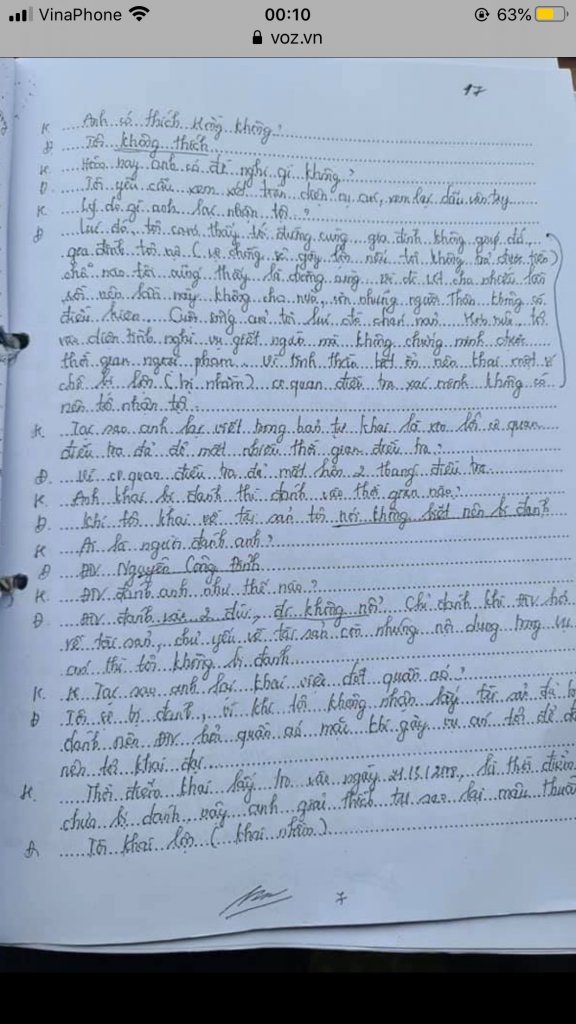 VinaPhone 00:10 63%
voz.vn
17
K Anh có thích Hồng không?
Đ Tôi không thích
K Hôm nay anh có đề nghị gì không?
Đ Tôi yêu cầu xem xét toàn diện vụ án, xem lại dấu vân tay
K Lý do gì anh lại nhận tội?
Đ Lúc đó, tôi cảm thấy tới đường cùng, gia đình không giúp đỡ,
gia đình tôi nói
thế nào tôi cũng thấy là đường cùng, vì đã viết cho nhiều lần
rồi nên lần này không cho nữa, còn những người thân không có
điều kiện. Cuộc sống tôi lúc đó chán nản. Hơn nữa, tôi
vào diện tình nghi vụ giết người mà không chứng minh được
thời gian ngoại phạm. Vì tinh thần bất ổn nên khai một vài
chỗ bị lộn (bị nhầm) cơ quan điều tra xác minh không có
nên tôi nhận tội.
K Tại sao anh lại viết trong bản tự khai là xin lỗi cơ quan
điều tra đã để mất nhiều thời gian điều tra?
Đ Vì cơ quan điều tra đã mất hơn 2 tháng điều tra
K Anh khai bị đánh thì đánh vào thời gian nào?
Đ Khi tôi khai về tài sản tôi nói không biết nên bị đánh
K Ai là người đánh anh?
Đ ĐTV Nguyễn Công Bình
K ĐTV đánh anh như thế nào?
Đ ĐTV đánh vào 2 đùi, đi không nổi. Chỉ đánh khi ĐTV hỏi
về tài sản, chủ yếu về tài sản còn những nội dung trong vụ
án thì tôi không bị đánh
K K Tại sao anh lại khai việc đốt quần áo?
Đ Tôi sợ bị đánh, vì khi tôi không nhận lấy tài sản đã bị
đánh nên ĐTV hỏi quần áo mặc khi gây vụ án tôi để đâu
nên tôi khai đại
K Thời điểm khai lấy tro vào ngày 21.13.1.2008, là thời điểm
chưa bị đánh, vậy anh giải thích tại sao lại mâu thuẫn
Đ Tôi khai lộn (khai nhầm)
7